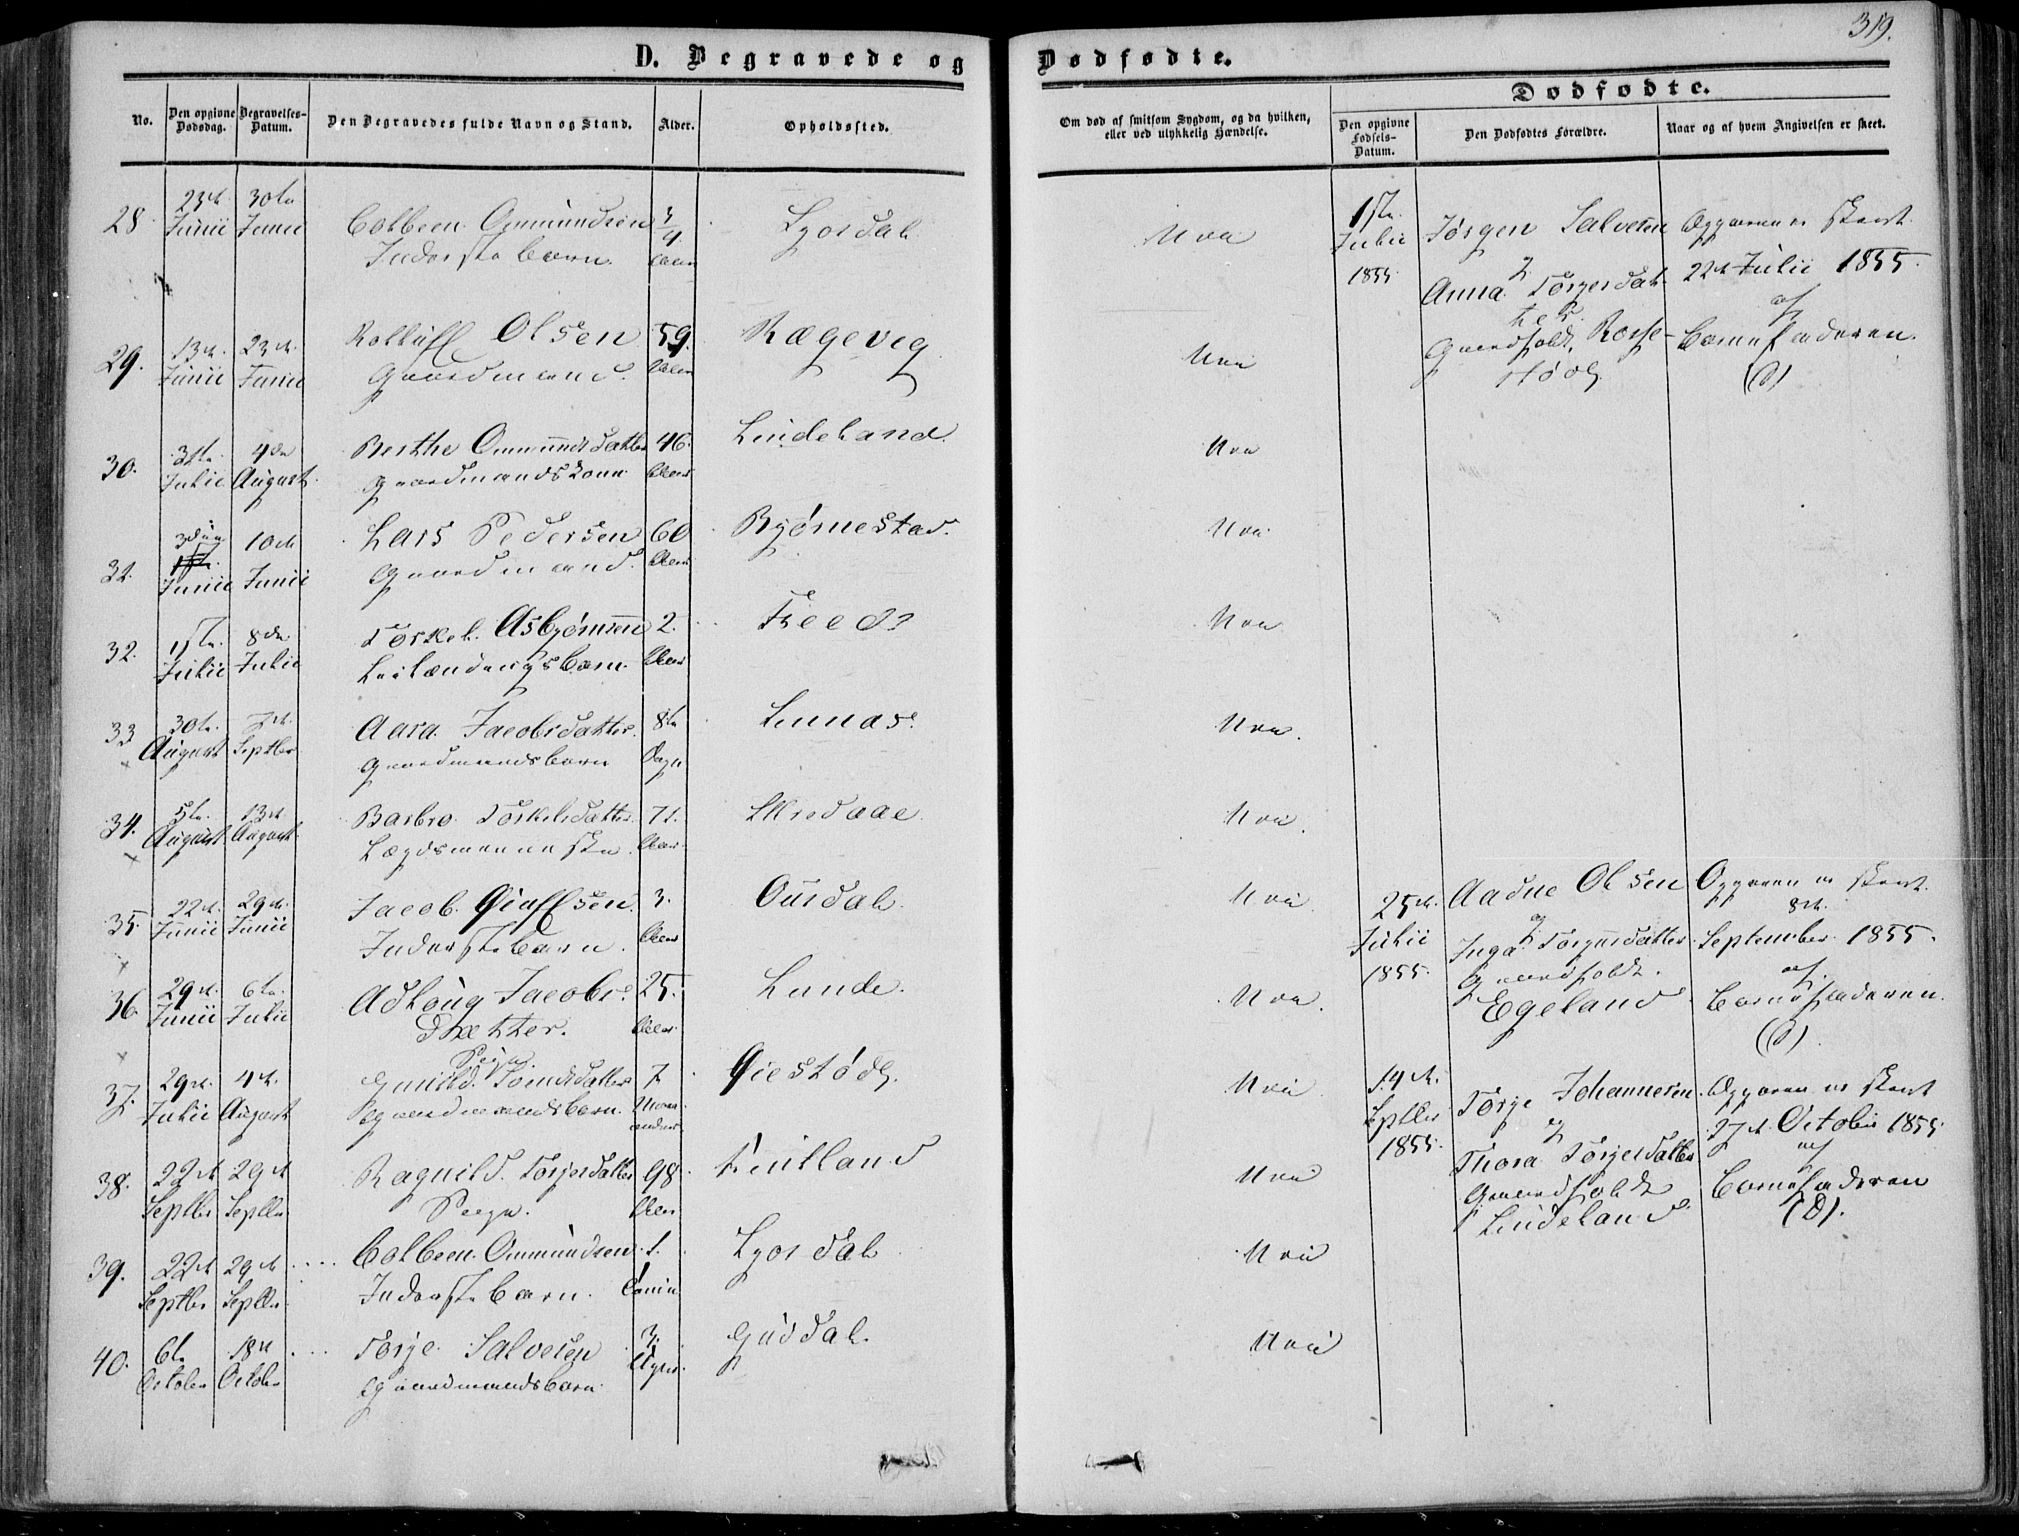 319.
D. Begravede og Dødfødte.
No.
Den opgivne Dødsdag.
Begravelses-Datum.
Den Begravedes fulde Navn og Stand.
Alder.
Opholdssted.
Om død af smitsom Sygdom, og da hvilken, eller ved ulykkelig Hændelse.
Dødfødte.
Den opgivne Fødsels-Datum.
Den Dødfødtes Forældre.
Naar og af hvem Angivelsen er skeet.
28. 23de 30te Colbeen Ommundsen 3/4 Lyosdal Nei
Junii Junii Inderstebarn. Aar
29. 13de 23de Rolluff Olsen 59. Rægevig Nei
Junii Junii Gaardmand. Aar
30. 31te 4de Berthe Ommundsdatter 46. Lindeland. Nei
Julii August Gaardmandskone Aar
31. 3die 10de Lars Pedersen 60 Bjørnestad. Nei
Junii Junii Gaardmand. Aar
32. 1ste 8de Torkel Asbjørnsen 2. Nei
Julii Julii Leilændingsbarn. Aar
33 30te 7de Aara Jacobsdatter 8te Nei.
August Septbr Gaardmandsbarn Dage
34. 5te 13de Barbro Torkelsdatter 71. Nei.
August August Lægdsmenneske. Aar
35. 22de 29de Jacob 3. Ousdal. Nei
Junii Junii Inderstebarn. Aar
36. 29de 6te Adloug Jacobs 25. Lunde. Nei.
Junii Julii Datter. Aar
37. 29de 4de Pige Gunild Tomesdatter 7 Qiestødl. Nei
Julii August Gaardmandsbarn. Maaneder
38. 22de 29de Ragnild Torjersdatter 98. Nei
Septbr Septbr Pige. Aar
39. 22de 29de Colbeen Ommundsen 1. Lyosdal Nei
Septbr Septbr Inderstebarn.
40. 6te 18de Torje Salvesen 3. Gusdal. Nei
October October Gaardmandsbarn. Uger
1ste Jørgen Salvesen Opgaven er skeet
Julii og 22de Julii 1855.
1855. Anna Torgersdat- af
ter
Gaardfolk, Rosse- Barnefaderen.
stødl. (D)
25de Aadne Olsen Opgaven er skeet
Julii og 8de
1855. Inga Torgersdatter September 1855.
Gaardfolk. af
Egeland Barnefaderen.
(D)
14de Torje Johannesen Opgaven er skeet
Septbr og 27de October 1855
1855. Thora Torjersdatter af
Gaardfolk Barnefaderen
Lindeland. (D).